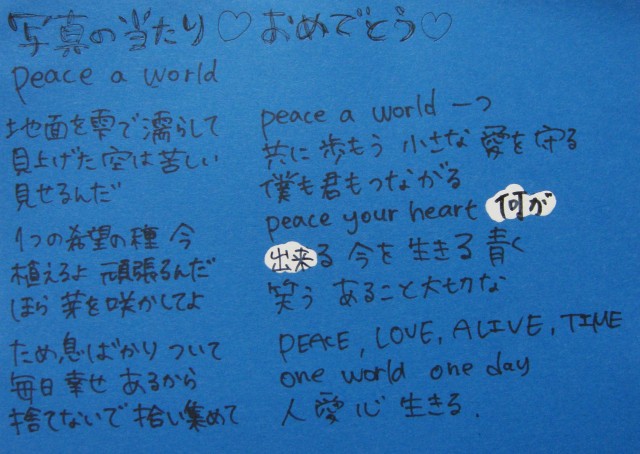 写真の当たり♡おめでとう♡
peace a world
地面を雫で濡らして
見上げた空は苦しい
見せるんだ
1つの希望の種 今
植えるよ 頑張るんだ
ほら 葉を咲かしてよ
ため息ばかり ついて
毎日 幸せ あるから
捨てないで 拾い集めて
peace a world 一つ
共に 歩もう 小さな 愛を 守る
僕も君もつながる
peace your heart 何が
出来る 今を 生きる 青く
笑う あること 大切な
PEACE, LOVE, ALIVE, TIME
one world one day
人 愛 心 生きる.